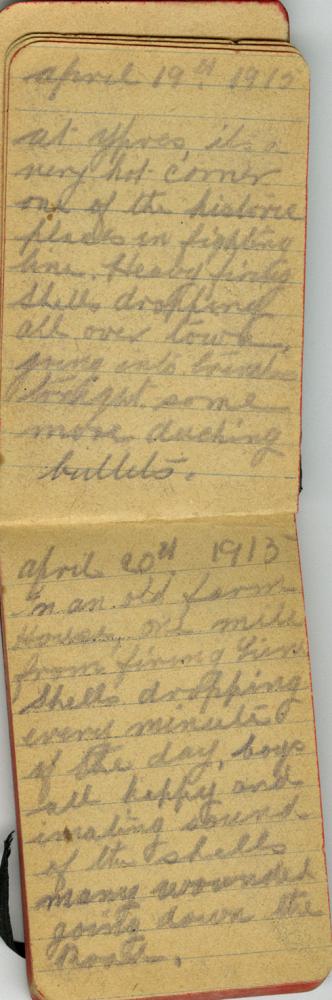 april 19th 1915
at Ypres, its a
very hot corner
one of the historic
places in fighting
line. Heavy firing
Shells dropping
all over town,
going into trenches
tonight some
more ducking
bullets.
april 20th 1915
In an old farm
House, one mile
from firing line
Shells dropping
every minute
of the day, boys
all happy and
imating sound
of the shells
many wounded
going down the
Road.